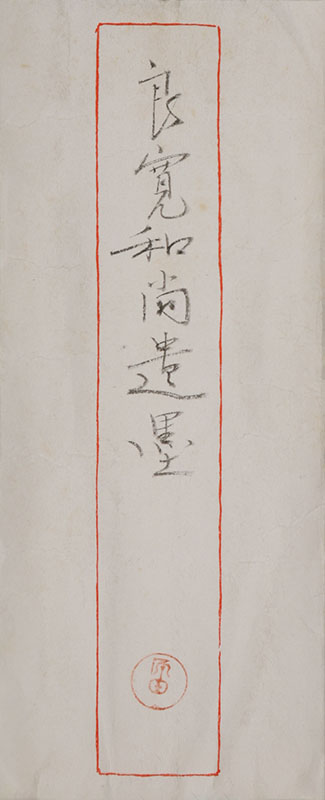 良寛和尚遺墨